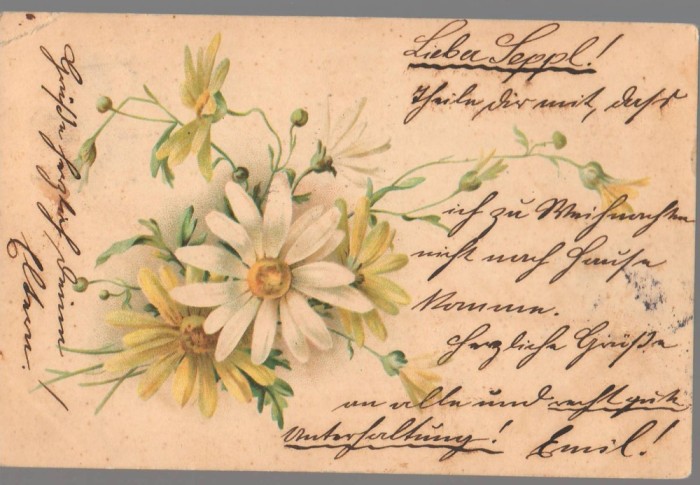 Lieber Seppl!
Theile dir mit, dass
ich zu Weihnachten
nicht nach Hause
komme.
Herzliche Grüße
an alle und recht gute
Unterhaltung! Emil!
Grüße herzlich deinen
Eltern!